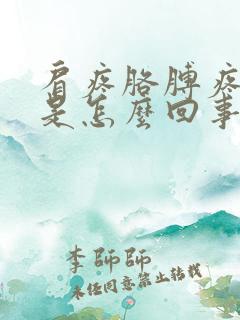 肩疼胳膊疼
是怎麼回事
李師師
未经同意禁止转载